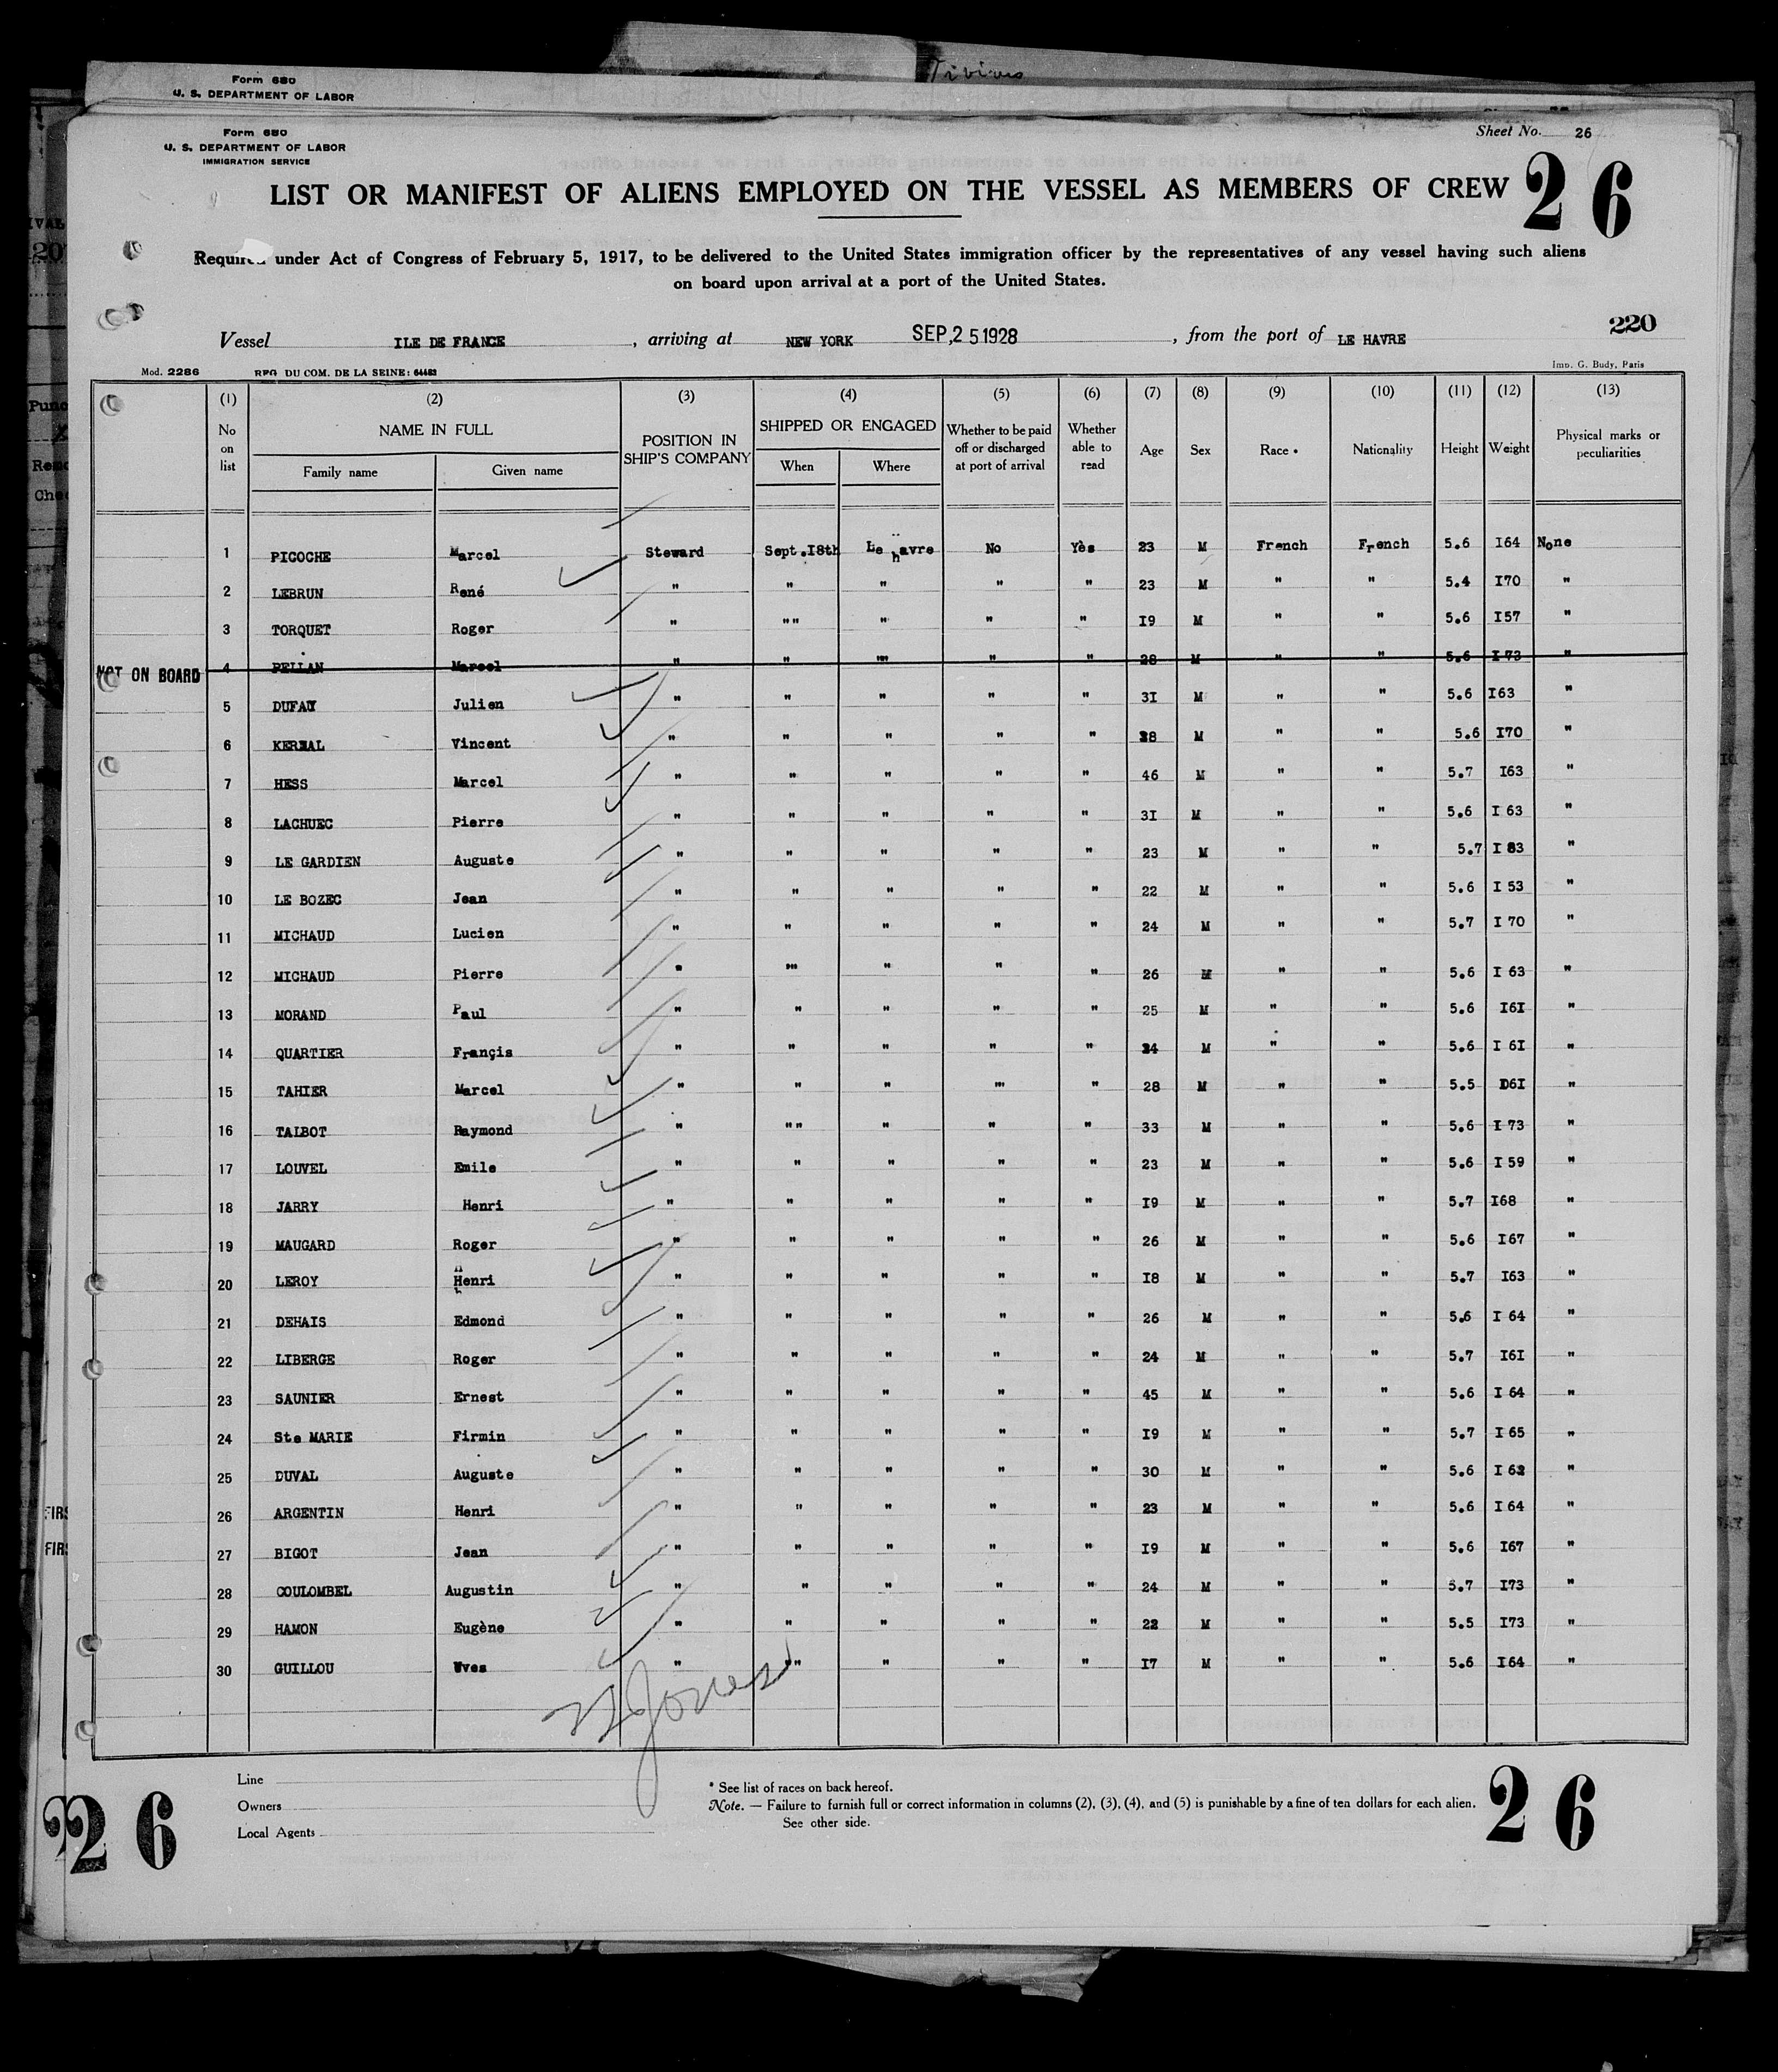 Tivives
Form 680
U. S. DEPARTMENT OF LABOR
Form 680
U. S. DEPARTMENT OF LABOR
IMMIGRATION SERVICE
Sheet No. 26
LIST OR MANIFEST OF ALIENS EMPLOYED ON THE VESSEL AS MEMBERS OF CREW
26
Required under Act of Congress of February 5, 1917, to be delivered to the United States immigration officer by the representatives of any vessel having such aliens
on board upon arrival at a port of the United States.
220
Vessel ILE DE FRANCE , arriving at NEW YORK SEP,25 1928 , from the port of LE HAVRE
Mod. 2286 REG DU COM. DE LA SEINE: 64483 Imp. G. Budy, Paris
(1) (2) (3) (4) (5) (6) (7) (8) (9) (10) (11) (12) (13)
No on list NAME IN FULL Family name Given name POSITION IN SHIP'S COMPANY SHIPPED OR ENGAGED When Where Whether to be paid off or discharged at port of arrival Whether able to read Age Sex Race * Nationality Height Weight Physical marks or peculiarities
1 PICOCHE Marcel Steward Sept.I8th Le havre No Yès 23 M French French 5.6 I64 None
2 LEBRUN René " " " " " 23 M " " 5.4 I70 "
3 TORQUET Roger " "" " " " I9 M " " 5.6 I57 "
NOT ON BOARD 4 PELLAN Marcel " " "" " " 28 M " " 5.6 I 73 "
5 DUFAY Julien " " " " " 3I M " " 5.6 I63 "
6 Vincent " " " " " 38 M " " 5.6 I70 "
7 HESS Marcel " " " " " 46 M " " 5.7 I63 "
8 LACHUEC Pierre " " " " " 3I M " " 5.6 I 63 "
9 LE GARDIEN Auguste " " " " " 23 M " " 5.7 I 83 "
10 LE BOZEC Jean " " " " " 22 M " " 5.6 I 53 "
11 MICHAUD Lucien " " " " " 24 M " " 5.7 I 70 "
12 MICHAUD Pierre " "" " " " 26 M " " 5.6 I 63 "
13 MORAND Paul " " " " " 25 M " " 5.6 I6I "
14 QUARTIER Françis " " " " " 24 M " " 5.6 I 6I "
15 TAHIER Marcel " " " "" " 28 M " " 5.5 I6I "
16 TALBOT Raymond " "" " " " 33 M " " 5.6 I 73 "
17 LOUVEL Emile " " " " " 23 M " " 5.6 I 59 "
18 JARRY Henri " " " " " I9 M " " 5.7 I68 "
19 MAUGARD Roger " " " " " 26 M " " 5.6 I67 "
20 LEROY Henri " " " " " I8 M " " 5.7 I63 "
21 DEHAIS Edmond " " " " " 26 M " " 5.6 I 64 "
22 LIBERGE Roger " " " " " 24 M " " 5.7 I6I "
23 SAUNIER Ernest " " " " " 45 M " " 5.6 I 64 "
24 Ste MARIE Firmin " " " " " I9 M " " 5.7 I 65 "
25 DUVAL Auguste " " " " " 30 M " " 5.6 I 62 "
26 ARGENTIN Henri " " " " " 23 M " " 5.6 I 64 "
27 BIGOT Jean " " " " " I9 M " " 5.6 I67 "
28 COULOMBEL Augustin " " " " " 24 M " " 5.7 I73 "
29 HAMON Eugène " " " " " 22 M " " 5.5 I73 "
30 GUILLOU Yves " "" " " " I7 M " " 5.6 I64 "
Jones
Line
Owners
Local Agents
* See list of races on back hereof.
Note. — Failure to furnish full or correct information in columns (2), (3), (4), and (5) is punishable by a fine of ten dollars for each alien.
See other side.
26
26